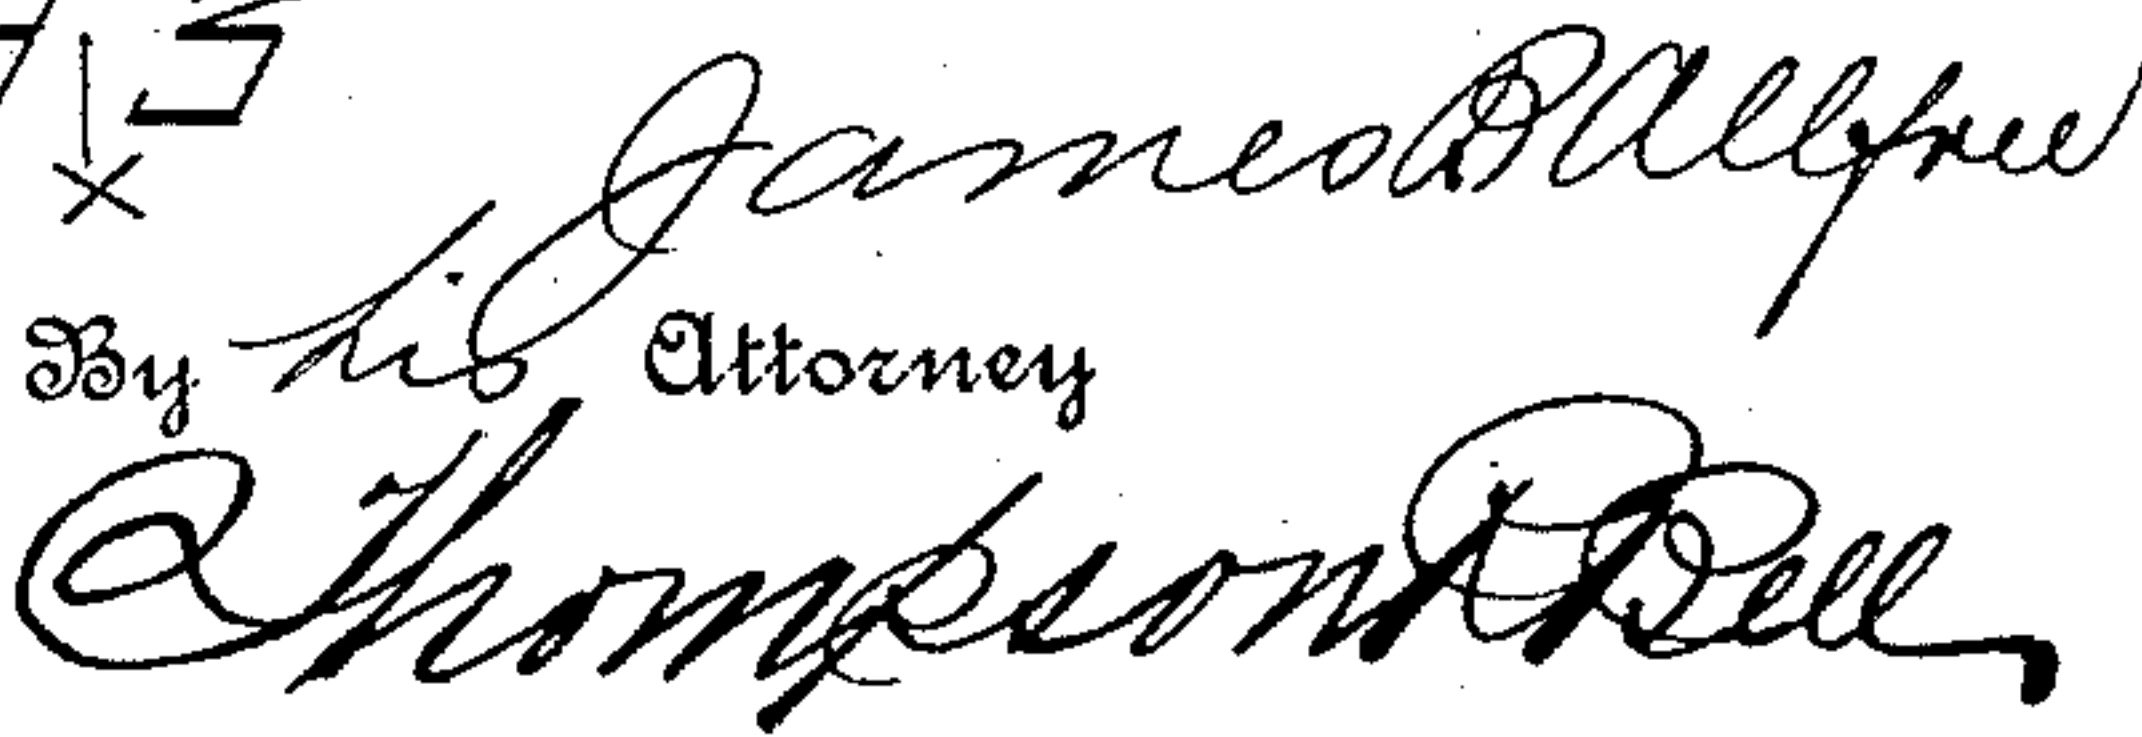 James B Allfree
By his Attorney
Thompson R Bell